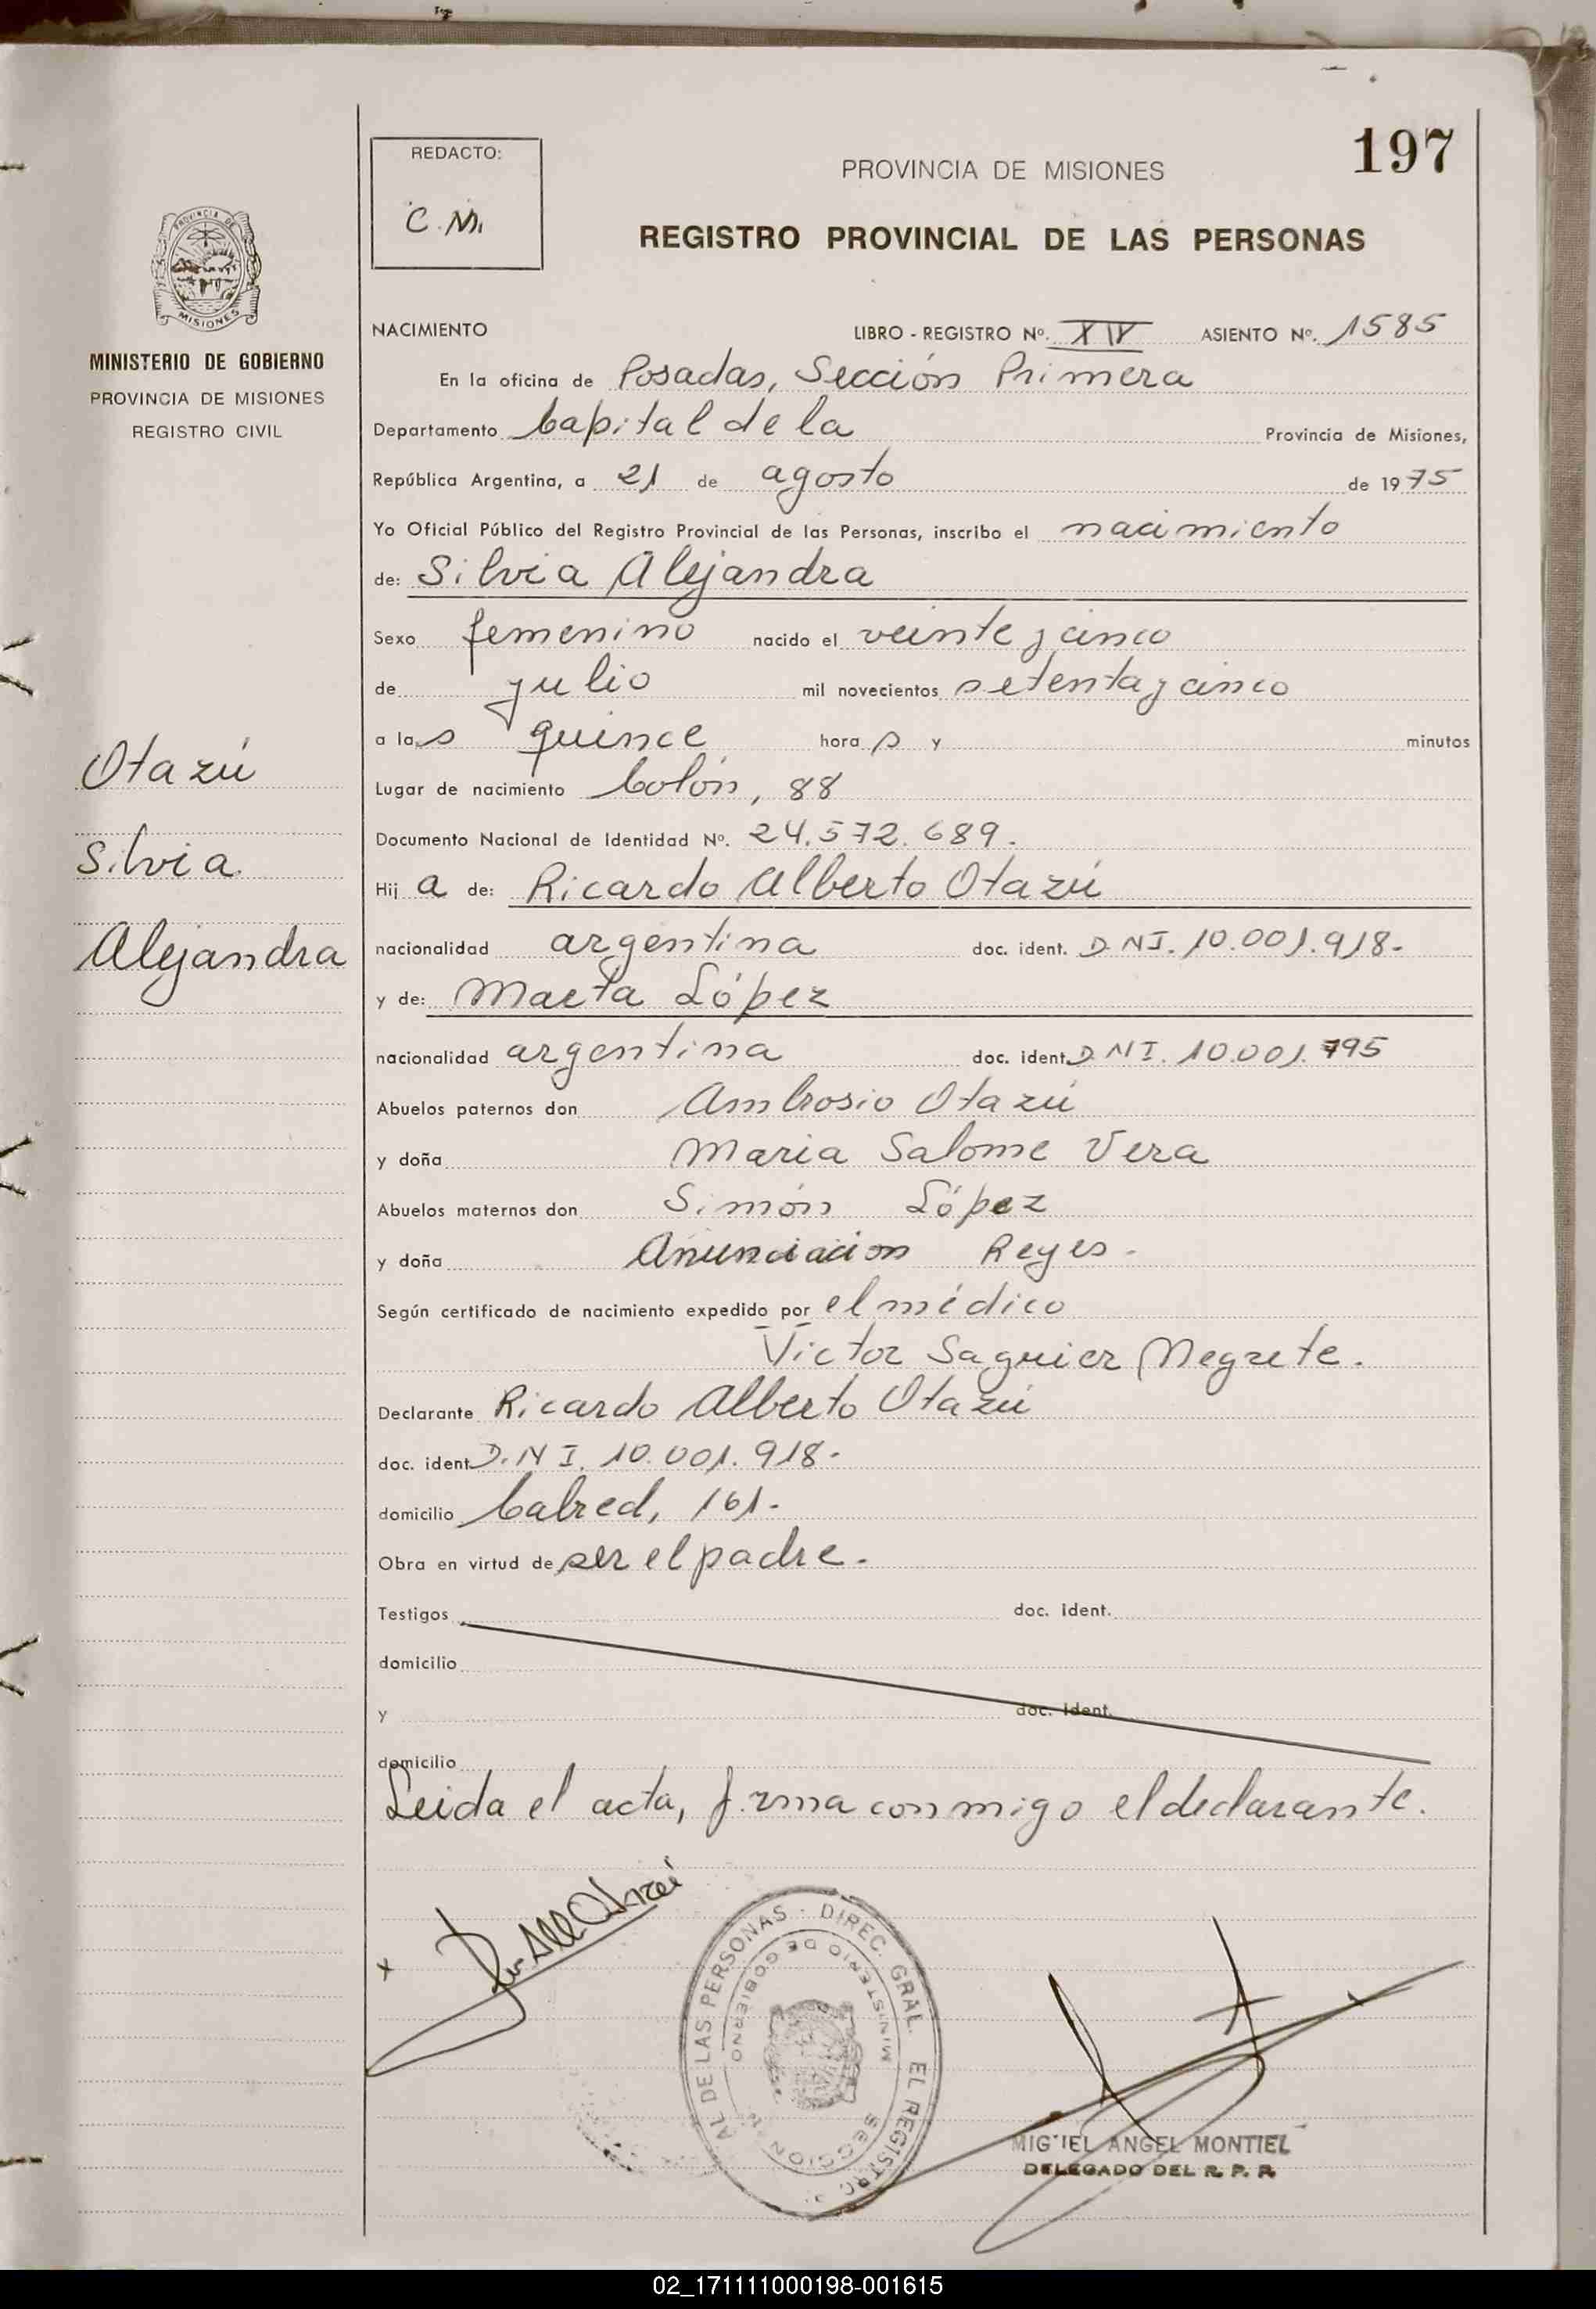 197
REDACTO:
C.M.
PROVINCIA DE MISIONES
REGISTRO PROVINCIAL DE LAS PERSONAS
PROVINCIA DE
MISIONES
MINISTERIO DE GOBIERNO
PROVINCIA DE MISIONES
REGISTRO CIVIL
Otazú
Silvia
Alejandra
NACIMIENTO LIBRO - REGISTRO Nº. XIV ASIENTO Nº. 1585
En la oficina de Posadas, Sección Primera
Departamento Capital de la Provincia de Misiones,
República Argentina, a 21 de agosto de 1975
Yo Oficial Público del Registro Provincial de las Personas, inscribo el nacimiento
de: Silvia Alejandra
Sexo femenino nacido el veinte y cinco
de julio mil novecientos setenta y cinco
a las quince horas y minutos
Lugar de nacimiento Colón, 88
Documento Nacional de Identidad Nº. 24.572.689.
Hija de: Ricardo Alberto Otazú
nacionalidad argentina doc. ident. D.N.I. 10.001.918-
y de: Marta López
nacionalidad argentina doc. ident. D.N.I. 10.001.795
Abuelos paternos don Ambrosio Otazú
y doña Maria Salome Vera
Abuelos maternos don Simón López
y doña Anunciacion Reyes -
Según certificado de nacimiento expedido por el médico
Victor Saguier Negrete.
Declarante Ricardo Alberto Otazú
doc. ident. D.N.I. 10.001.918-
domicilio Cabred, 161-
Obra en virtud de ser el padre.
Testigos doc. ident.
domicilio
y doc. ident.
domicilio
Leida el acta, firma conmigo el declarante.
x
AL DE LAS PERSONAS - DIREC. GRAL. EL REGISTRO
MINISTERIO DE GOBIERNO
SECCION
MIGUEL ANGEL MONTIEL
DELEGADO DEL R. P. P.
02_171111000198-001615